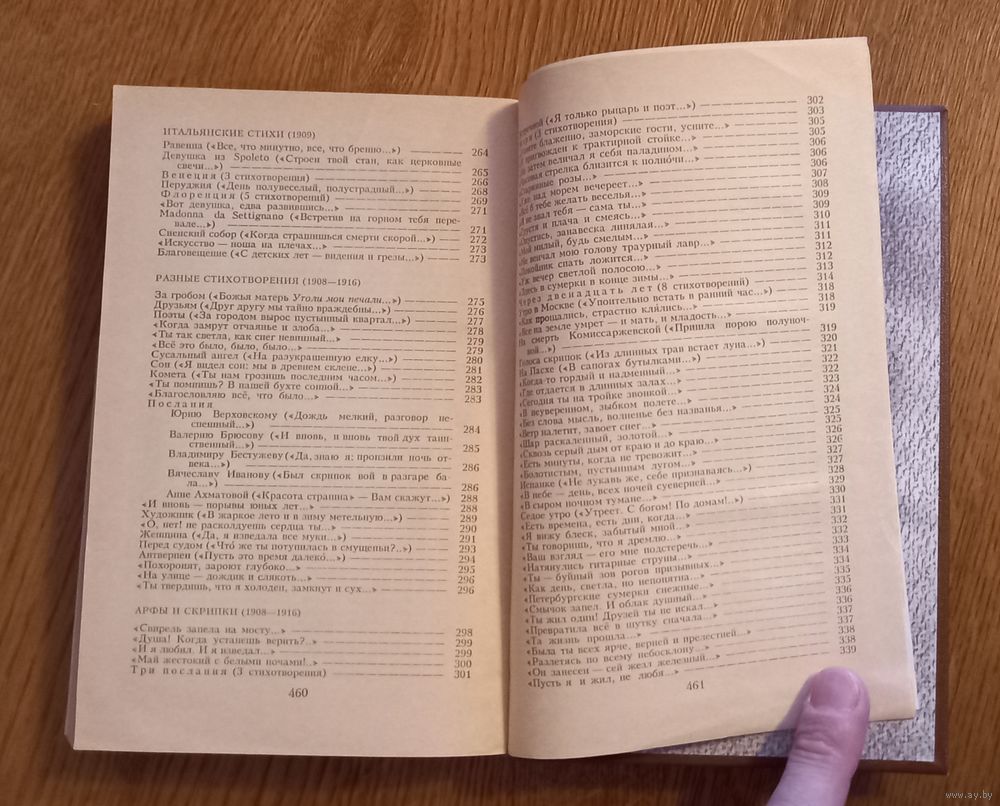 ИТАЛЬЯНСКИЕ СТИХИ (1909)
Равенна («Все, что минутно, все, что бренно...») 264
Девушка из Spoleto («Строен твой стан, как церковные
свечи...») 265
Венеция (3 стихотворения) 266
Перуджия («День полувеселый, полустрадный...») 268
Флоренция (5 стихотворений) 269
«Вот девушка, едва развившись...» 271
Madonna da Settignano («Встретив на горном тебя пере-
вале...») 271
Сиенский собор («Когда страшишься смерти скорой...») 272
«Искусство — ноша на плечах...» 273
Благовещение («С детских лет — видения и грезы...») 273
РАЗНЫЕ СТИХОТВОРЕНИЯ (1908—1916)
За гробом («Божья матерь Утоли мои печали...») 275
Друзьям («Друг другу мы тайно враждебны...») 276
Поэты («За городом вырос пустынный квартал...») 277
«Когда замрут отчаянье и злоба...» 278
«Ты так светла, как снег невинный...» 279
«Всё это было, было, было...» 279
Сусальный ангел («На разукрашенную елку...») 280
Сон («Я видел сон: мы в древнем склепе...») 281
Комета («Ты нам грозишь последним часом...») 282
«Ты помнишь? В нашей бухте сонной...» 283
«Благословляю всё, что было...» 283
Послания
Юрию Верховскому («Дождь мелкий, разговор не-
спешный...») 284
Валерию Брюсову («И вновь, и вновь твой дух таин-
ственный...») 285
Владимиру Бестужеву («Да, знаю я: пронзили ночь от-
века...») 286
Вячеславу Иванову («Был скрипок вой в разгаре ба-
ла...») 286
Анне Ахматовой («Красота страшна» — Вам скажут...») 288
«И вновь — порывы юных лет...» 288
Художник («В жаркое лето и в зиму метельную...») 289
«О, нет! не расколдуешь сердца ты...» 290
Женщина («Да, я изведала все муки...») 291
Перед судом («Что́ же ты потупилась в смущеньи?..») 293
Антверпен («Пусть это время далеко...») 294
«Похоронят, зароют глубоко...» 295
«На улице — дождик и слякоть...» 296
«Ты твердишь, что я холоден, замкнут и сух...» 296
АРФЫ И СКРИПКИ (1908—1916)
«Свирель запела на мосту...» 298
«Душа! Когда устанешь верить?..» 299
«И я любил. И я изведал...» 299
«Май жестокий с белыми ночами!..» 300
Три послания (3 стихотворения) 301
460
(«Я только рыцарь и поэт...») 302
(3 стихотворения) 303
блаженно, заморские гости, усните...» 305
пригвожден к трактирной стойке...» 305
затем величал я себя паладином...» 306
стрелка близится к полночи...» 306
розы...» 306
над морем вечереет...» 307
б тебе желать веселья...» 308
не звал тебя — сама ты...» 309
и плача и смеясь...» 309
занавеска линялая...» 310
милый, будь смелым...» 311
«Не венчал мою голову траурный лавр...» 311
«Покойник спать ложится...» 312
«Уж вечер светлой полосою...» 312
«Здесь в сумерки в конце зимы...» 313
Через двенадцать лет (8 стихотворений) 314
Утро в Москве («Упоительно встать в ранний час...») 318
«Как прощались, страстно клялись...» 318
«Все на земле умрет — и мать, и младость...» 319
На смерть Комиссаржевской («Пришла порою полуноч-
ной...») 319
Голоса скрипок («Из длинных трав встает луна...») 320
На Пасхе («В сапогах бутылками...») 321
«Когда-то гордый и надменный...» 322
«Где отдается в длинных залах...» 322
«Сегодня ты на тройке звонкой...» 323
«В неуверенном, зыбком полете...» 324
«Без слова мысль, волненье без названья...» 324
«Ветр налетит, завоет снег...» 325
«Шар раскаленный, золотой...» 325
«Сквозь серый дым от краю и до краю...» 326
«Есть минуты, когда не тревожит...» 326
«Болотистым, пустынным лугом...» 327
Испанке («Не лукавь же, себе признаваясь...») 327
«В небе — день, всех ночей суеверней...» 328
«В сыром ночном тумане...» 329
Седое утро («Утреет. С богом! По домам!..») 330
«Есть времена, есть дни, когда...» 331
«Я вижу блеск, забытый мной...» 331
«Ты говоришь, что я дремлю...» 332
«Ваш взгляд — его мне подстеречь...» 332
«Натянулись гитарные струны...» 333
«Ты — буйный зов рогов призывных...» 334
«Как день, светла, но непонятна...» 334
«Петербургские сумерки снежные...» 335
«Смычок запел. И облак душный...» 335
«Ты жил один! Друзей ты не искал...» 336
«Превратила всё в шутку сначала...» 336
«Та жизнь прошла...» 337
«Была ты всех ярче, верней и прелестней...» 337
«Разлетясь по всему небосклону...» 338
«Он занесен — сей жезл железный...» 338
«Пусть я и жил, не любя...» 339
461
www.ay.by